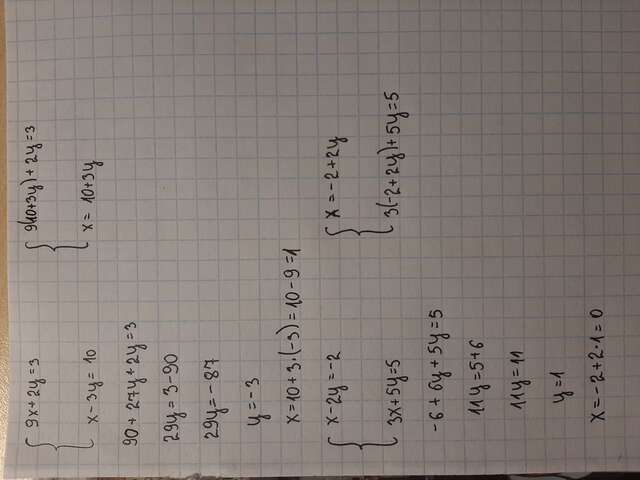 { 9x+2y=3 { 9(10+3y)+2y=3
x-3y=10 x=10+3y
90+27y+2y=3
29y=3-90
29y=-87
y=-3
x=10+3·(-3)=10-9=1
{ x-2y=-2 { x=-2+2y
3x+5y=5 3(-2+2y)+5y=5
-6+6y+5y=5
11y=5+6
11y=11
y=1
x=-2+2·1=0